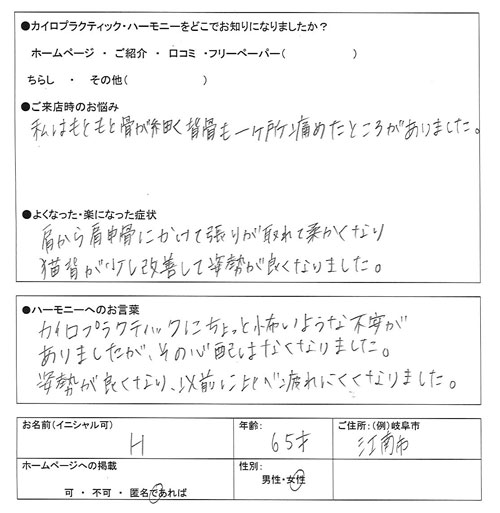 ●カイロプラクティック・ハーモニーをどこでお知りになりましたか？
ホームページ ・ ご紹介 ・ 口コミ ・フリーペーパー(　　　　　　)
ちらし ・ その他(　　　　　　)
●ご来店時のお悩み
私はもともと骨が細く背骨も一ヶ所痛めたところがありました。
●よくなった・楽になった症状
肩から肩甲骨にかけて張りが取れて柔かくなり
猫背が少し改善して姿勢が良くなりました。
●ハーモニーへのお言葉
カイロプラクティックにちょっと怖いような不安が
ありましたが、その心配はなくなりました。
姿勢が良くなり、以前に比べ疲れにくくなりました。
お名前(イニシャル可)
H
年齢:
65才
ご住所:(例)岐阜市
江南市
ホームページへの掲載
可 ・ 不可 ・ 匿名であれば
性別:
男性・女性